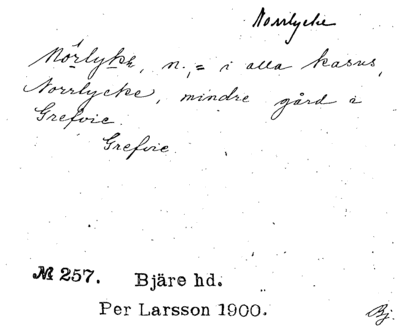 Norrlycke
Nǒrlyke, n., = i alla kasus,
Norrlycke, mindre gård i
Grefvie.
Grefvie
№ 257. Bjäre hd.
Per Larsson 1900.
Bj.